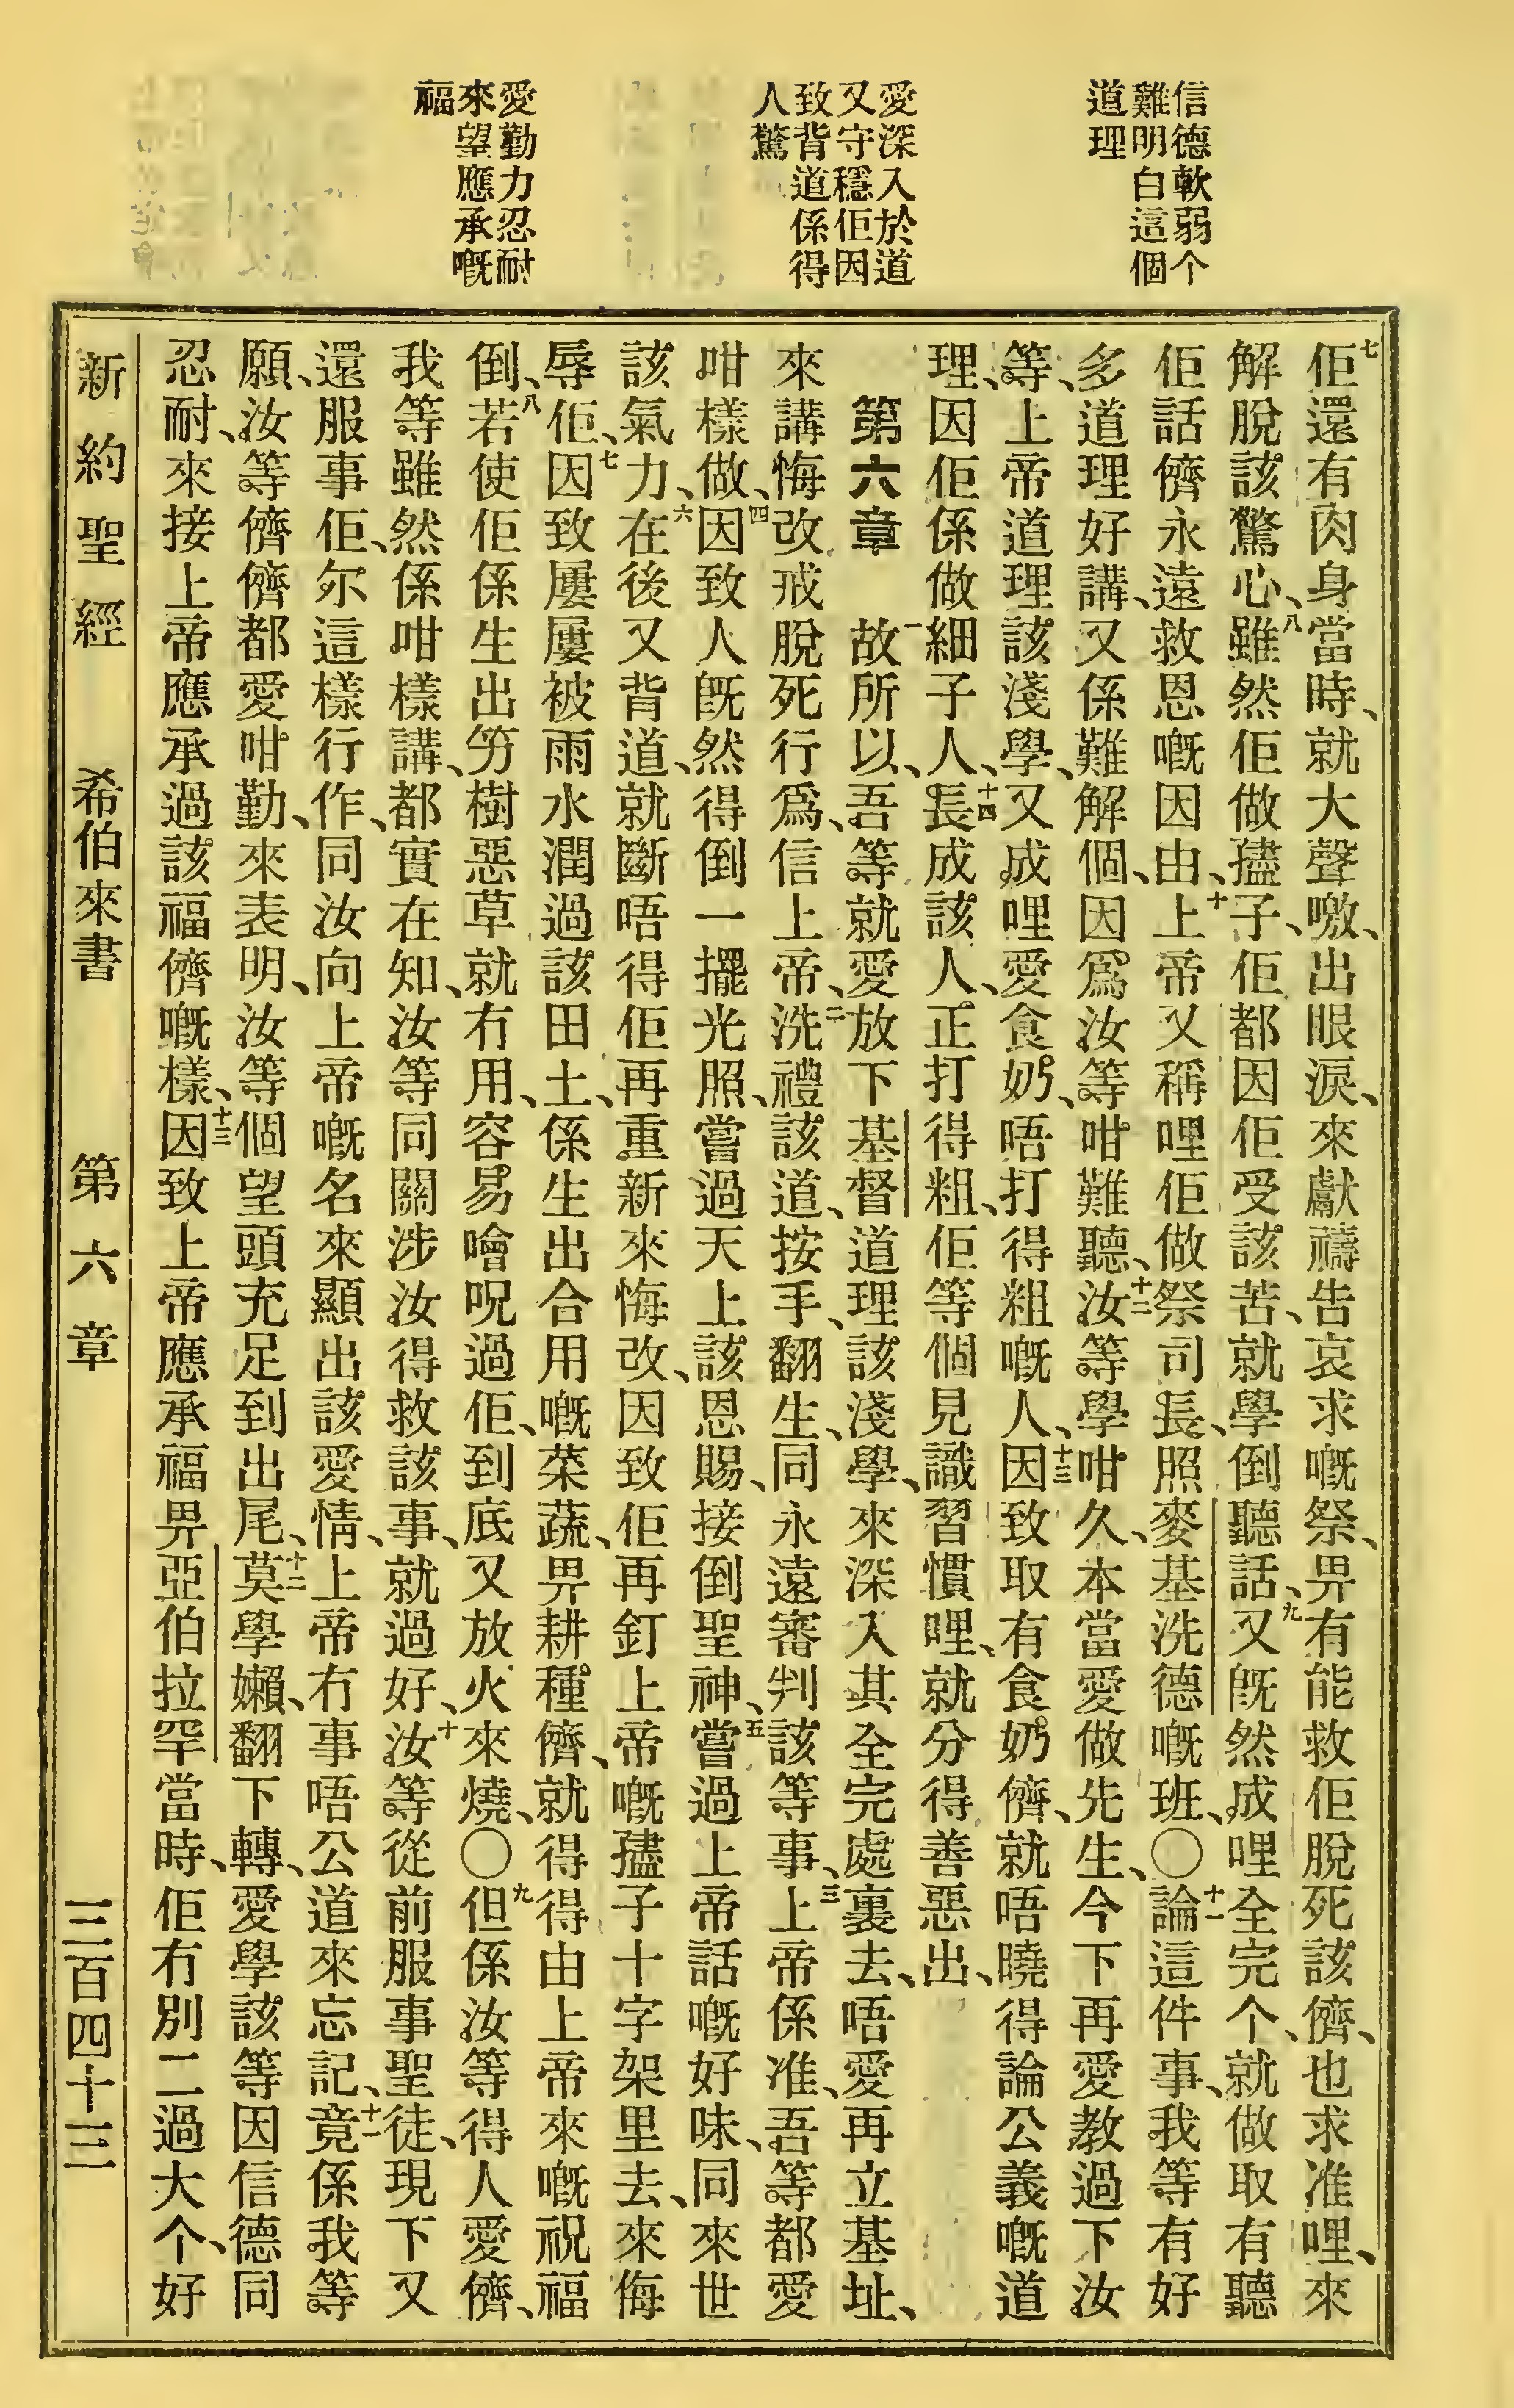 信德軟弱个
難明白這個
道理
愛深入於道
又守穩佢因
致背道係得
人驚
愛勤力忍耐
來望應承嘅
福
七佢還有肉身當時、就大聲噭、出眼淚、來獻禱告哀求嘅祭、畀有能救佢脫死該儕、也求准哩、來
解脫該驚心、八雖然佢做孻子、佢都因佢受該苦、就學倒聽話、九又既然成哩全完个、就做取有聽
佢話儕永遠救恩嘅因由、十上帝又稱哩佢做祭司長、照麥基洗德嘅班、〇十一論這件事、我等有好
多道理好講、又係難解個、因爲汝等咁難聽、十二汝等學咁久、本當愛做先生、今下再愛教過下汝
等、上帝道理該淺學、又成哩愛食奶、唔打得粗嘅人、十三因致取有食奶儕、就唔曉得論公義嘅道
理、因佢係做細子人、十四長成該人、正打得粗、佢等個見識習慣哩、就分得善惡出、
第六章　一故所以、吾等就愛放下基督道理該淺學、來深入其全完處裏去、唔愛再立基址、
來講悔改戒脫死行爲、信上帝、二洗禮該道、按手、翻生、同永遠審判該等事、三上帝係准、吾等都愛
咁樣做、四因致人既然得倒一擺光照、嘗過天上該恩賜、接倒聖神、五嘗過上帝話嘅好味、同來世
該氣力、六在後又背道、就斷唔得佢再重新來悔改、因致佢再釘上帝嘅孻子十字架里去、來侮
辱佢、七因致屢屢被雨水潤過該田土、係生出合用嘅菜蔬、畀耕種儕、就得得由上帝來嘅祝福
倒、八若使佢係生出竻樹惡草、就冇用、容易噲呪過佢、到底又放火來燒、〇九但係汝等得人愛儕、
我等雖然係咁樣講、都實在知、汝等同關涉汝得救該事、就過好、十汝等從前服事聖徒、現下又
還服事佢、尔這樣行作、同汝向上帝嘅名來顯出該愛情、上帝冇事唔公道來忘記、十一竟係我等
願、汝等儕儕都愛咁勤、來表明、汝等個望頭充足到出尾、十二莫學嬾、翻下轉、愛學該等因信德同
忍耐、來接上帝應承過該福儕嘅樣、十三因致上帝應承福畀亞伯拉罕當時、佢冇別二過大个、好
新約聖經　希伯來書　第六章　三百四十三